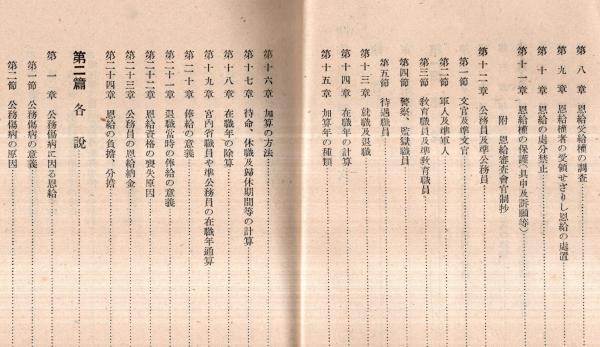 第八章 恩給受給權の調査
第九章 恩給權者の受領せざりし恩給の處置
第十章 恩給の處分禁止
第十一章 恩給權の保護(具申及訴願等)
附 恩給審査會官制抄
第十二章 公務員及準公務員
第一節 文官及準文官
第二節 軍人及準軍人
第三節 敎育職員及準敎育職員
第四節 警察、監獄職員
第五節 待遇職員
第十三章 就職及退職
第十四章 在職年の計算
第十五章 加算年の種類
第十六章 加算の方法
第十七章 待命、休職及歸休期間等の計算
第十八章 在職年の除算
第十九章 宮內省職員や準公務員の在職年通算
第二十章 俸給の意義
第二十一章 退職當時の俸給の意義
第二十二章 恩給資格の喪失原因
第二十三章 公務員の恩給納金
第二十四章 恩給の負擔、分擔
第二篇 各說
第一章 公務傷病に因る恩給
第一節 公務傷病の意義
第二節 公務傷病の原因